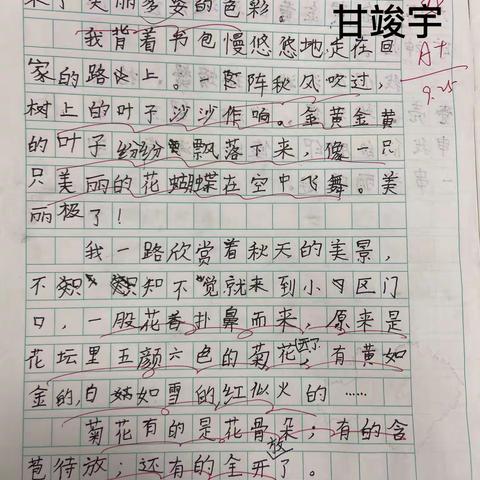 来了美丽多姿的色彩。
甘竣宇
我背着书包慢悠悠地走在回
A+
家的路上。一阵阵秋风吹过,
9.25
树上的叶子沙沙作响。金黄金黄
的叶子纷纷飘落下来,像一只
只美丽的花蝴蝶在空中飞舞。美
丽极了!
我一路欣赏着秋天的美景,
不知不觉就来到小区门
口,一股花香扑鼻而来,原来是
花坛里五颜六色的菊花开了,有黄如
金的,白如雪的,红似火的……
菊花有的是花骨朵;有的含
苞待放;还有的全开放了。